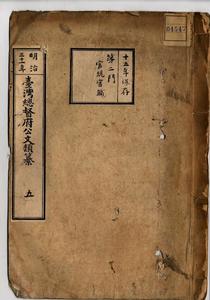 十五年保存
第二門
官規官職
明治三十一年
臺灣總督府公文類纂
五